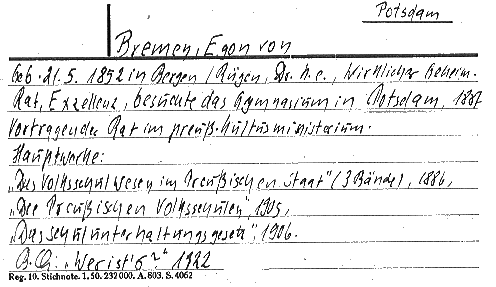 Potsdam
Bremen, Egon von
geb. 21.5. 1852 in Bergen / Rügen, Dr. h.c., Wirklicher Geheim.
Rat, Exzellenz, besuchte das Gymnasium in Potsdam, 1887
Vortragender Rat im preuß. Kultusministerium.
Hauptwerke:
„Das Volksschulwesen im Preußischen Staat" (3 Bände), 1886,
„Die Preußischen Volksschulen", 1905,
„Das Schulunterhaltungsgesetz", 1906.
B.Q.: „Wer ist's?" 1922
Reg. 10. Stichnote. 1. 50. 232 000. A. 803. S. 4062